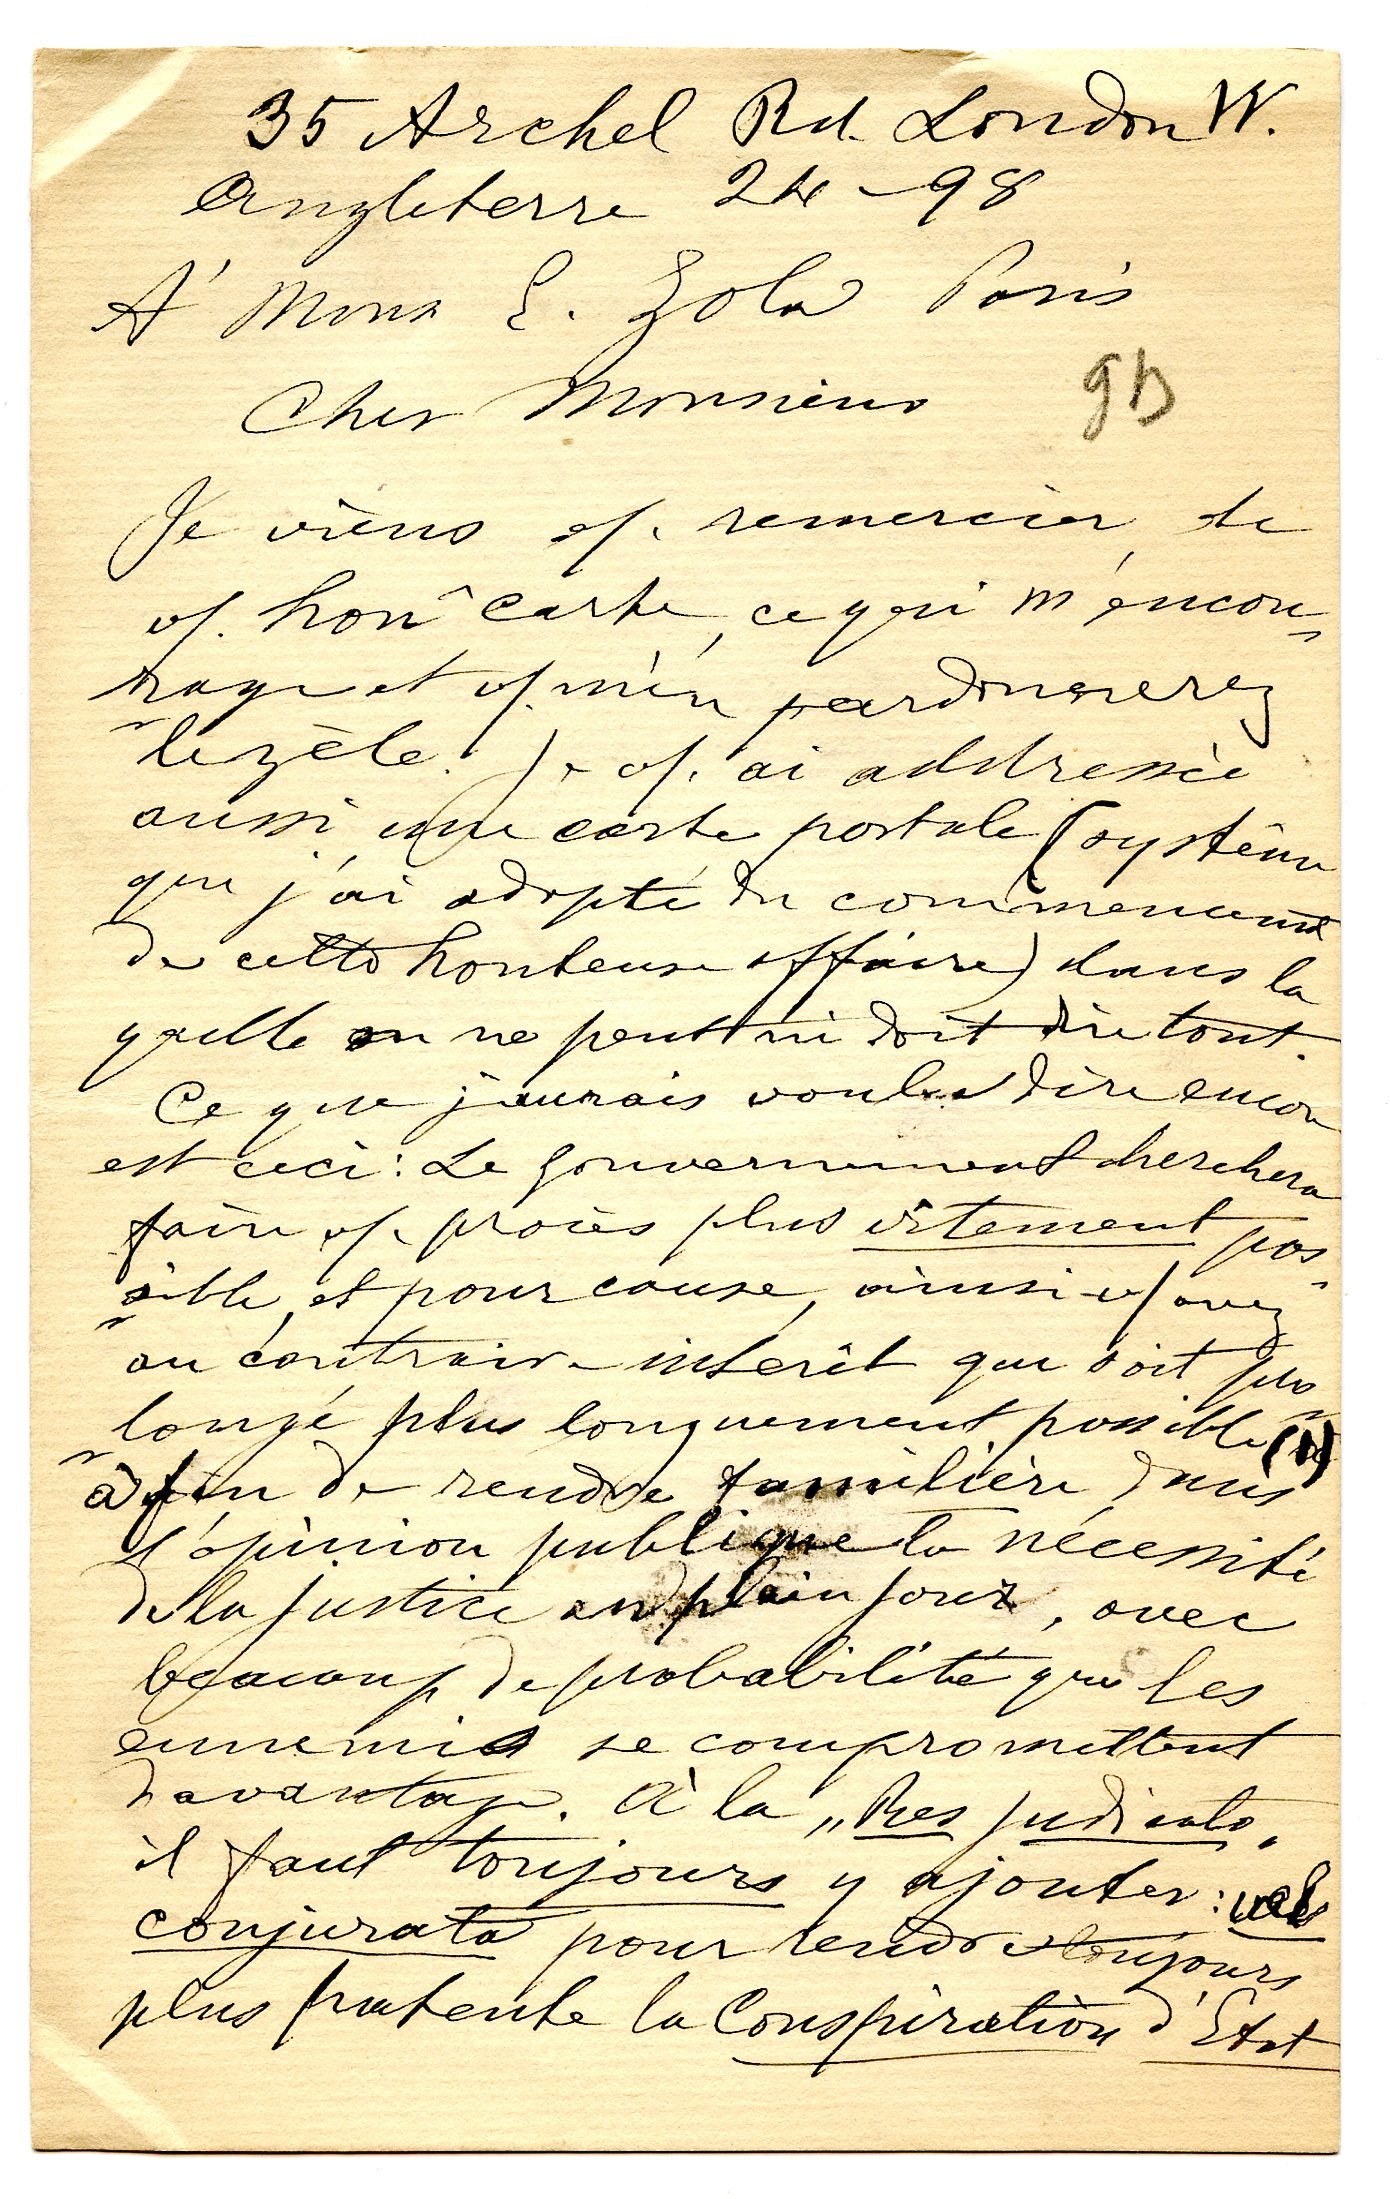 35 Archel Rd. London W.
Angleterre 24 - 98
A' Mons E. Zola Paris
Cher Monsieur
gb
Je viens v/. remercier de
v/. hon^ carte, ce qui m'encou„
„rage et v/. m'en pardonnerez
le zèle. Je v/. ai addressée
aussi une carte postale (système
que j'ai adopté du commencement
de cette honteuse affaire) dans la
quelle on ne peut ni doit dire tout.
Ce que j'aurais voulu dire encore
est ceci: Le Gouvernement cherchera
faire v/. procès plus vitement pos„
„sible, et pour cause, ainsi v/ avez
au contraire intérêt que soit pro„
„longé plus longuement possible (1)
à fin de rendre familière dans
l'opinion publique la nécessité
de la justice au plain jour, avec
beacoup de probabilité que les
ennemis se compromettent
davantage. À la „Res judicata„
il faut toujours y ajouter: vel
conjurata pour rendre toujours
plus patente la Conspiration d'Etat